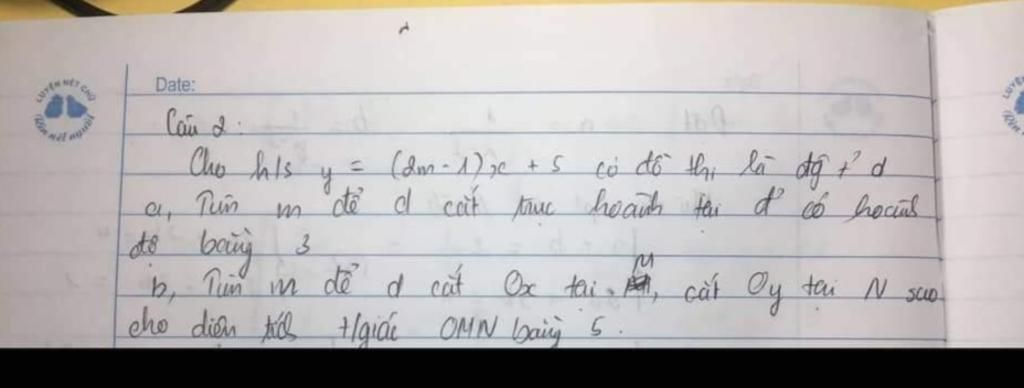 LUYỆN NÉT CHỮ
Rèn nết người
Date:
Câu 2:
Cho h/s y = (2m-1)x + 5 có đồ thị là đg t² d
a, Tìm m để d cắt trục hoành tại đ² có hoành
độ bằng 3
b, Tìm m để d cắt Ox tại M, cắt Oy tại N sao
cho diện tích t/giác OMN bằng 5.